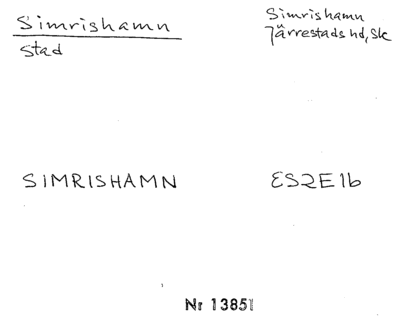 Simrishamn
Stad
Simrishamn
Järrestads hd, Sk
SIMRISHAMN
ES2E1b
Nr 13851